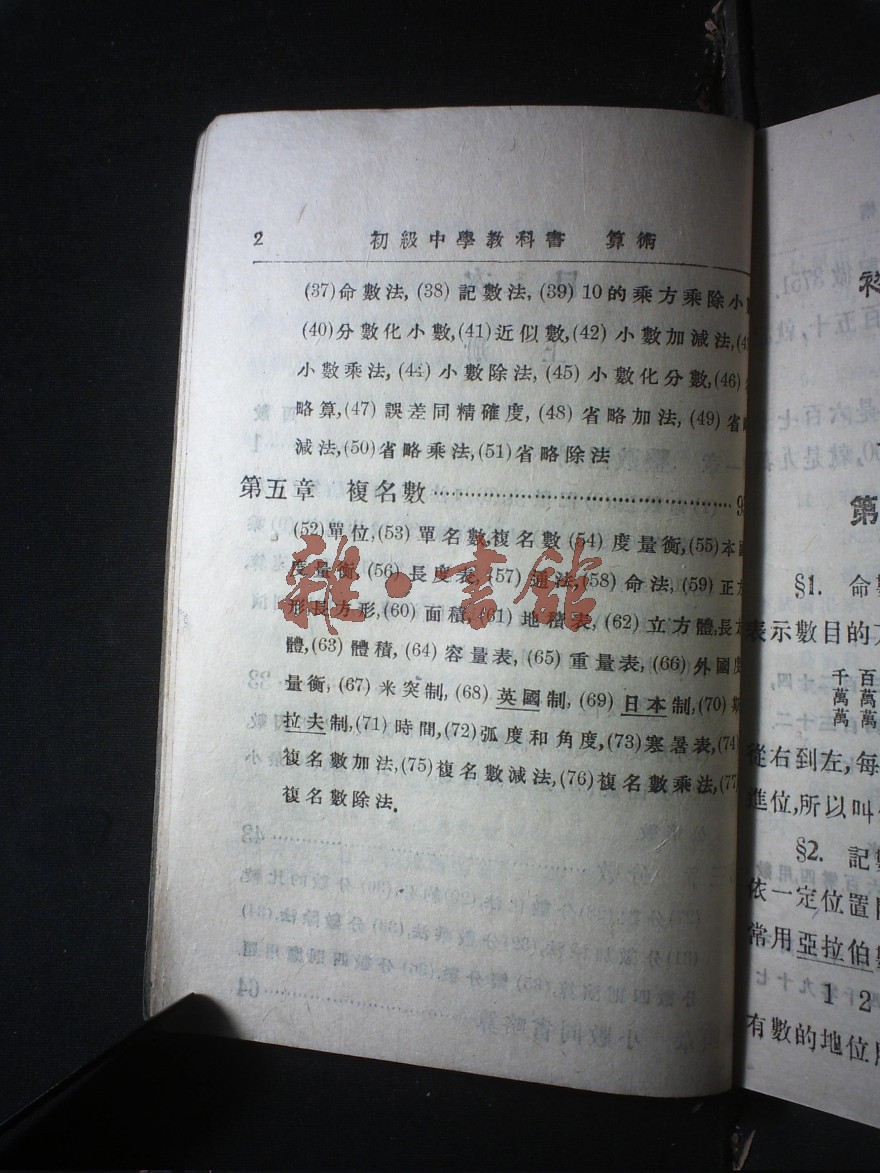 2 初級中學教科書 算術
(37)命數法, (38) 記數法, (39) 10的乘方乘除小
(40)分數化小數,(41)近似數,(42) 小數加減法,
小數乘法, (44) 小數除法, (45) 小數化分數,(46)
略算,(47) 誤差同精確度, (48) 省略加法, (49) 省
減法,(50)省略乘法,(51)省略除法
第五章 複名數
(52)單位,(53) 單名數,複名數 (54) 度量衡,(55)本
度量衡, (56) 長度表, (57) 通法,(58) 命法, (59) 正
形長方形,(60) 面積, (61) 地積表, (62) 立方體,長
體,(63) 體積, (64) 容量表, (65) 重量表, (66) 外國
量衡, (67) 米突制, (68) 英國制, (69) 日本制,(70)
拉夫制,(71)時間,(72)弧度和角度,(73)寒暑表,(74)
複名數加法,(75)複名數減法,(76)複名數乘法,(77)
複名數除法.
雜·書館
第
§1. 命
表示數目的
千百
萬萬
萬萬
從右到左,每
進位,所以叫
§2. 記
依一定位置
常用亞拉伯
1 2
有數的地位